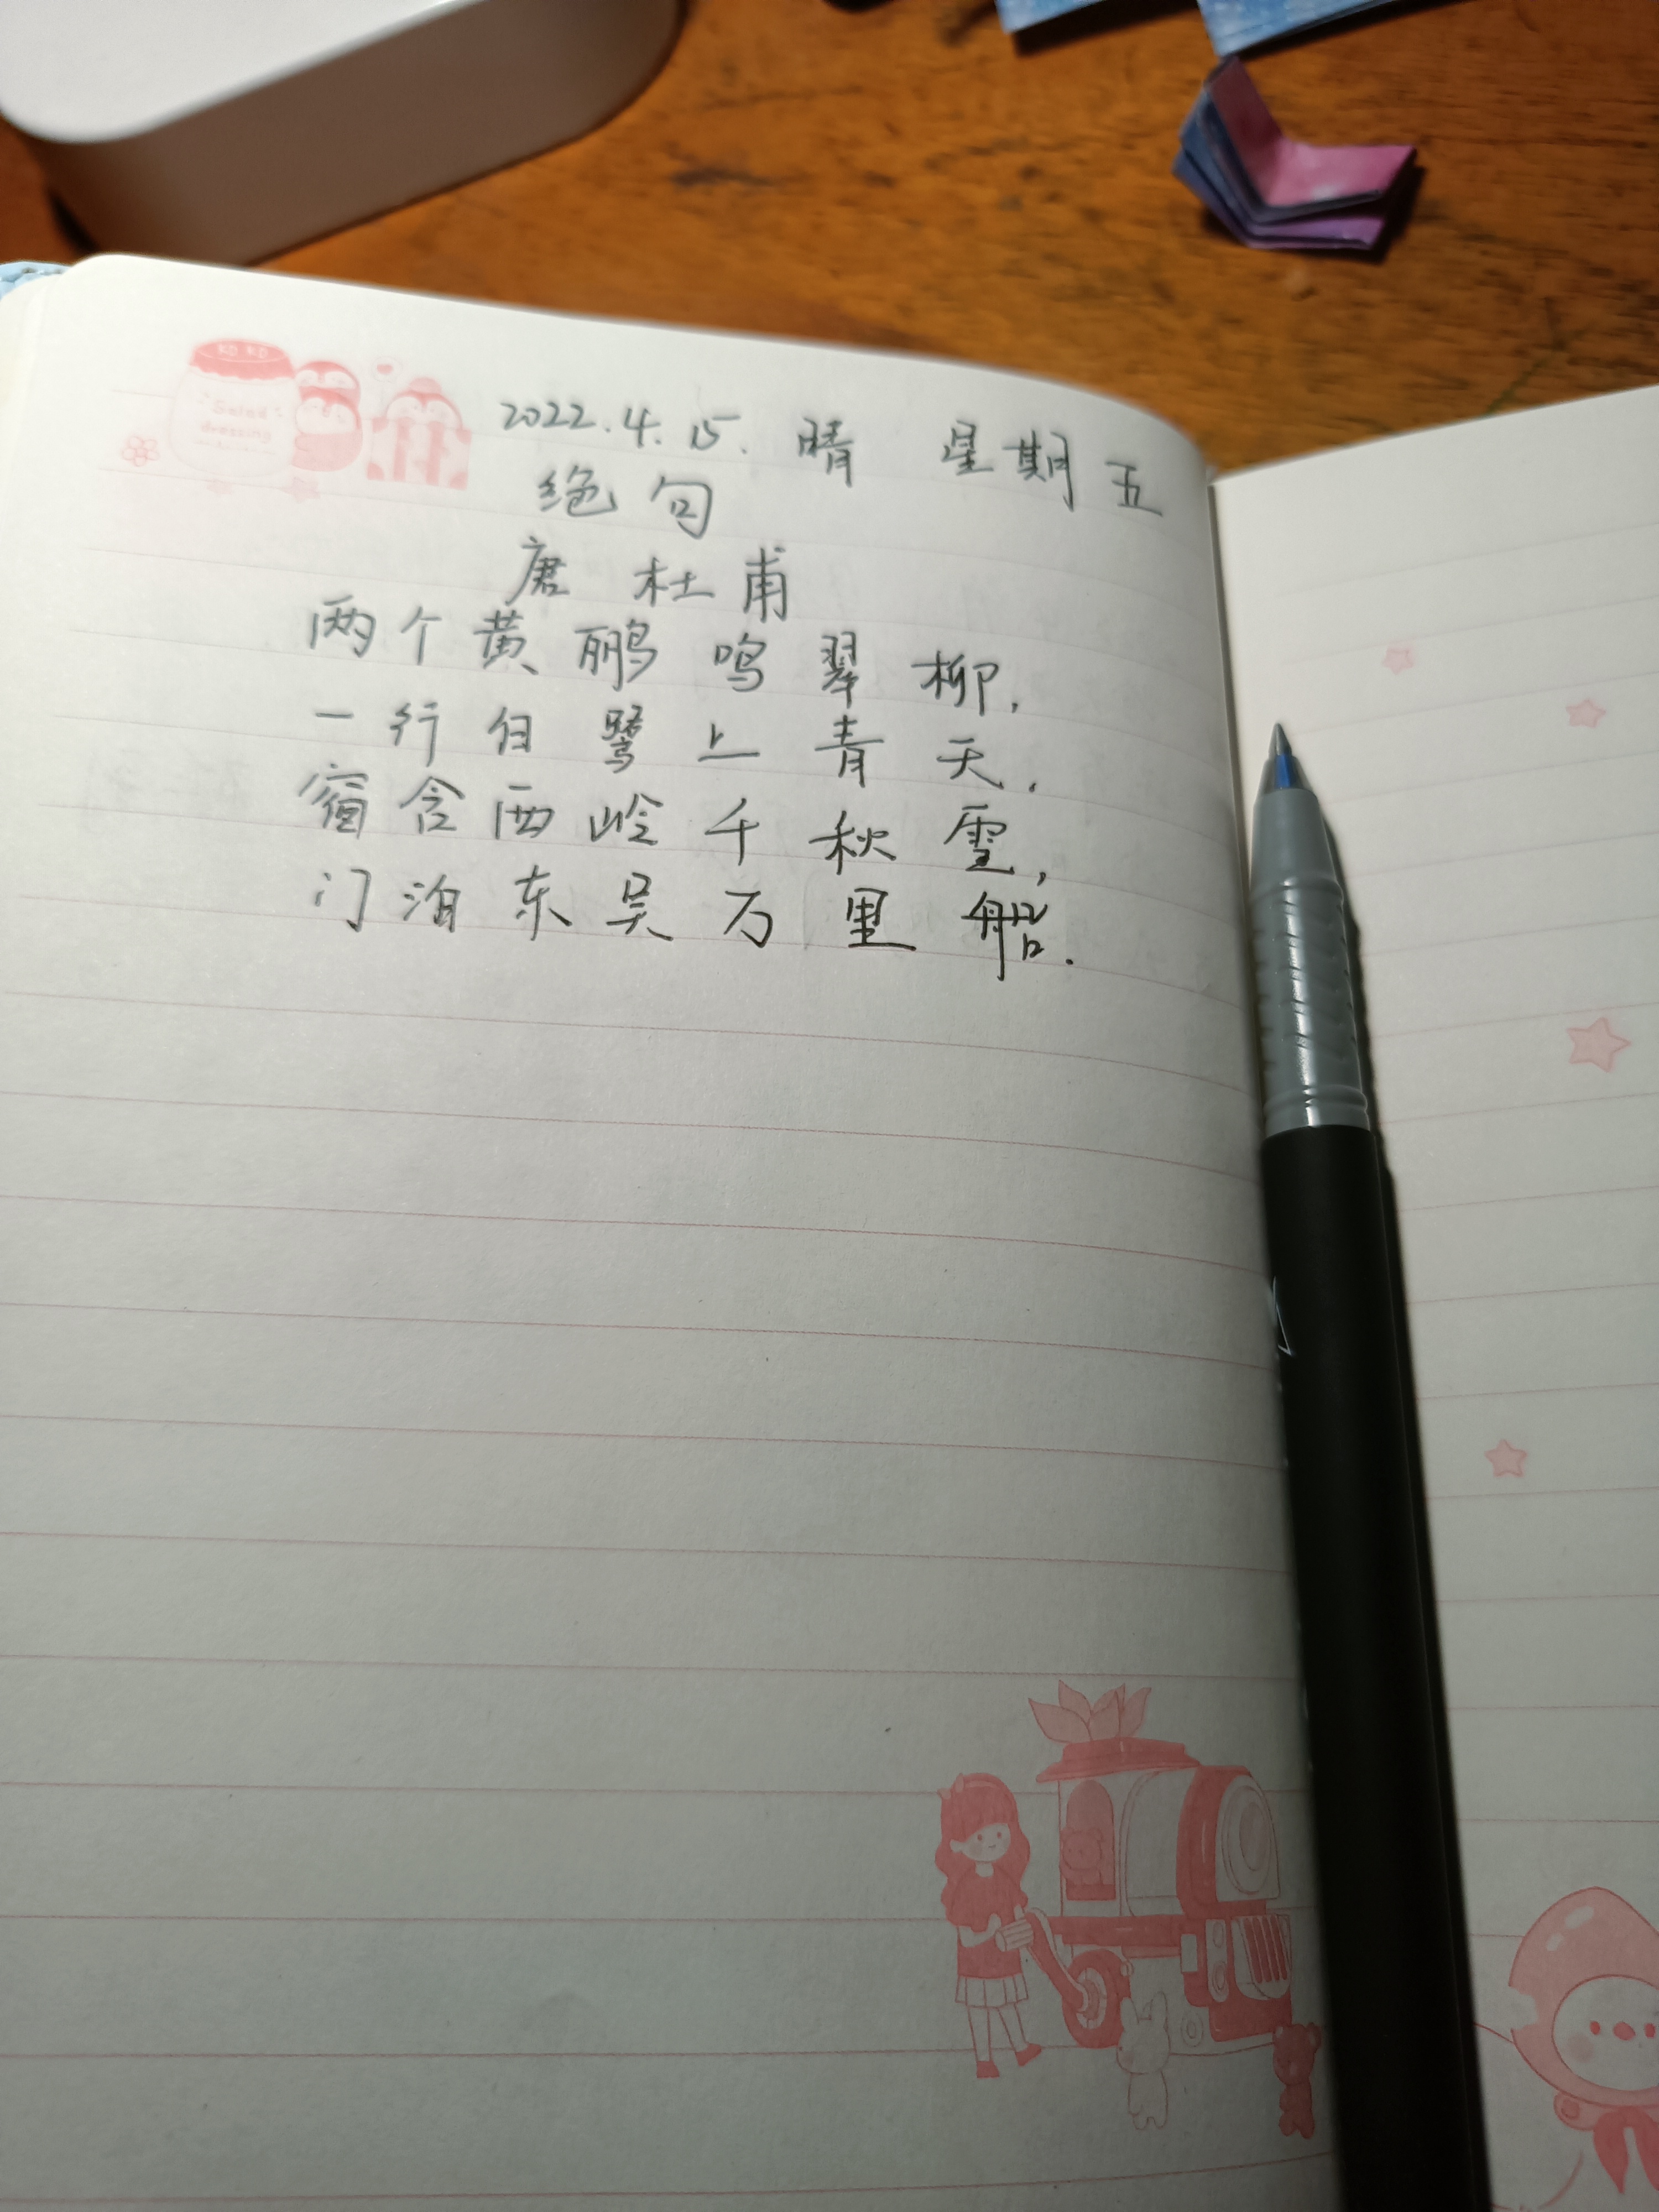 KD KD
Salad
dressing
2022.4.15. 晴 星期五
绝句
唐 杜甫
两个黄鹂鸣翠柳,
一行白鹭上青天.
窗含西岭千秋雪,
门泊东吴万里船.